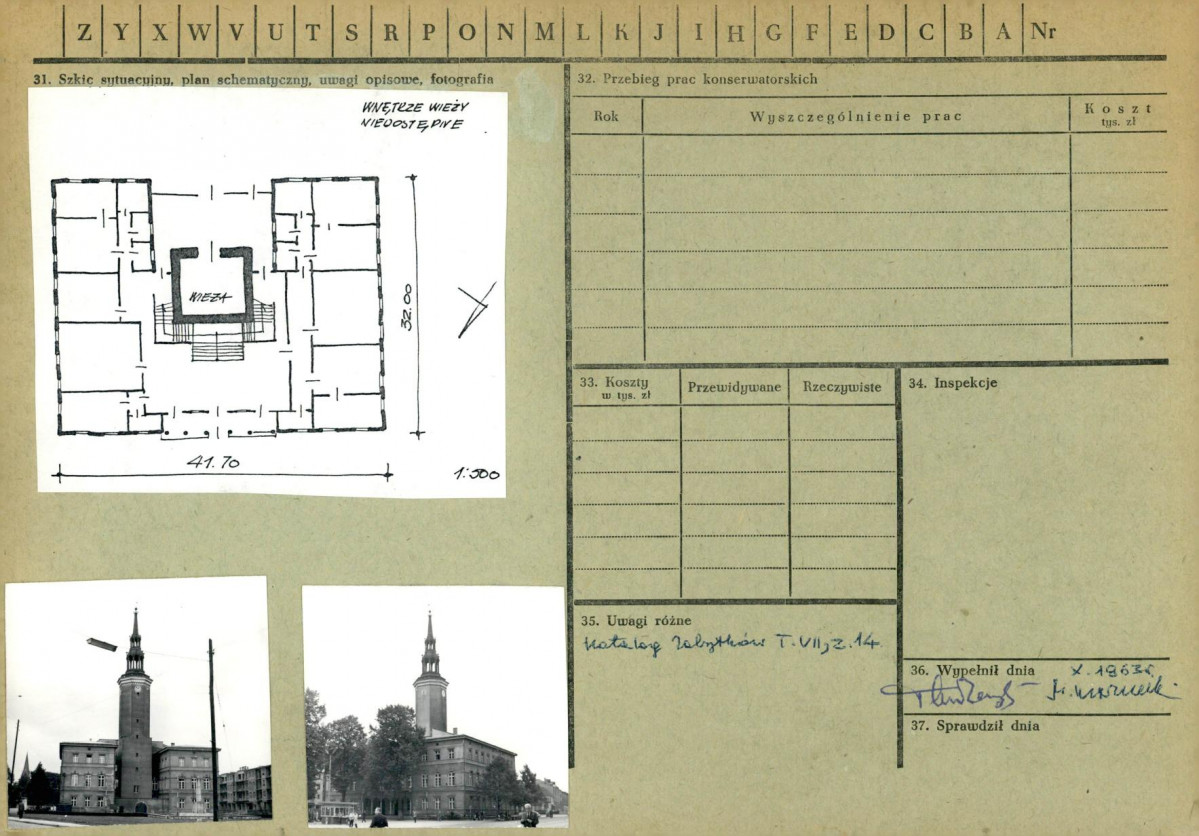 Z Y X W V U T S R P O N M L K J I H G F E D C B A Nr
31. Szkic sytuacyjny, plan schematyczny, uwagi opisowe, fotografia
WNĘTRZE WIEŻY
NIEDOSTĘPNE
WIEŻA
32.00
41.70
1:500
32. Przebieg prac konserwatorskich
Rok
Wyszczególnienie prac
Koszt
tys. zł
33. Koszty
w tys. zł
Przewidywane
Rzeczywiste
34. Inspekcje
35. Uwagi różne
Katalog Zabytków T. VII, z. 14
36. Wypełnił dnia
X. 1963r.
37. Sprawdził dnia